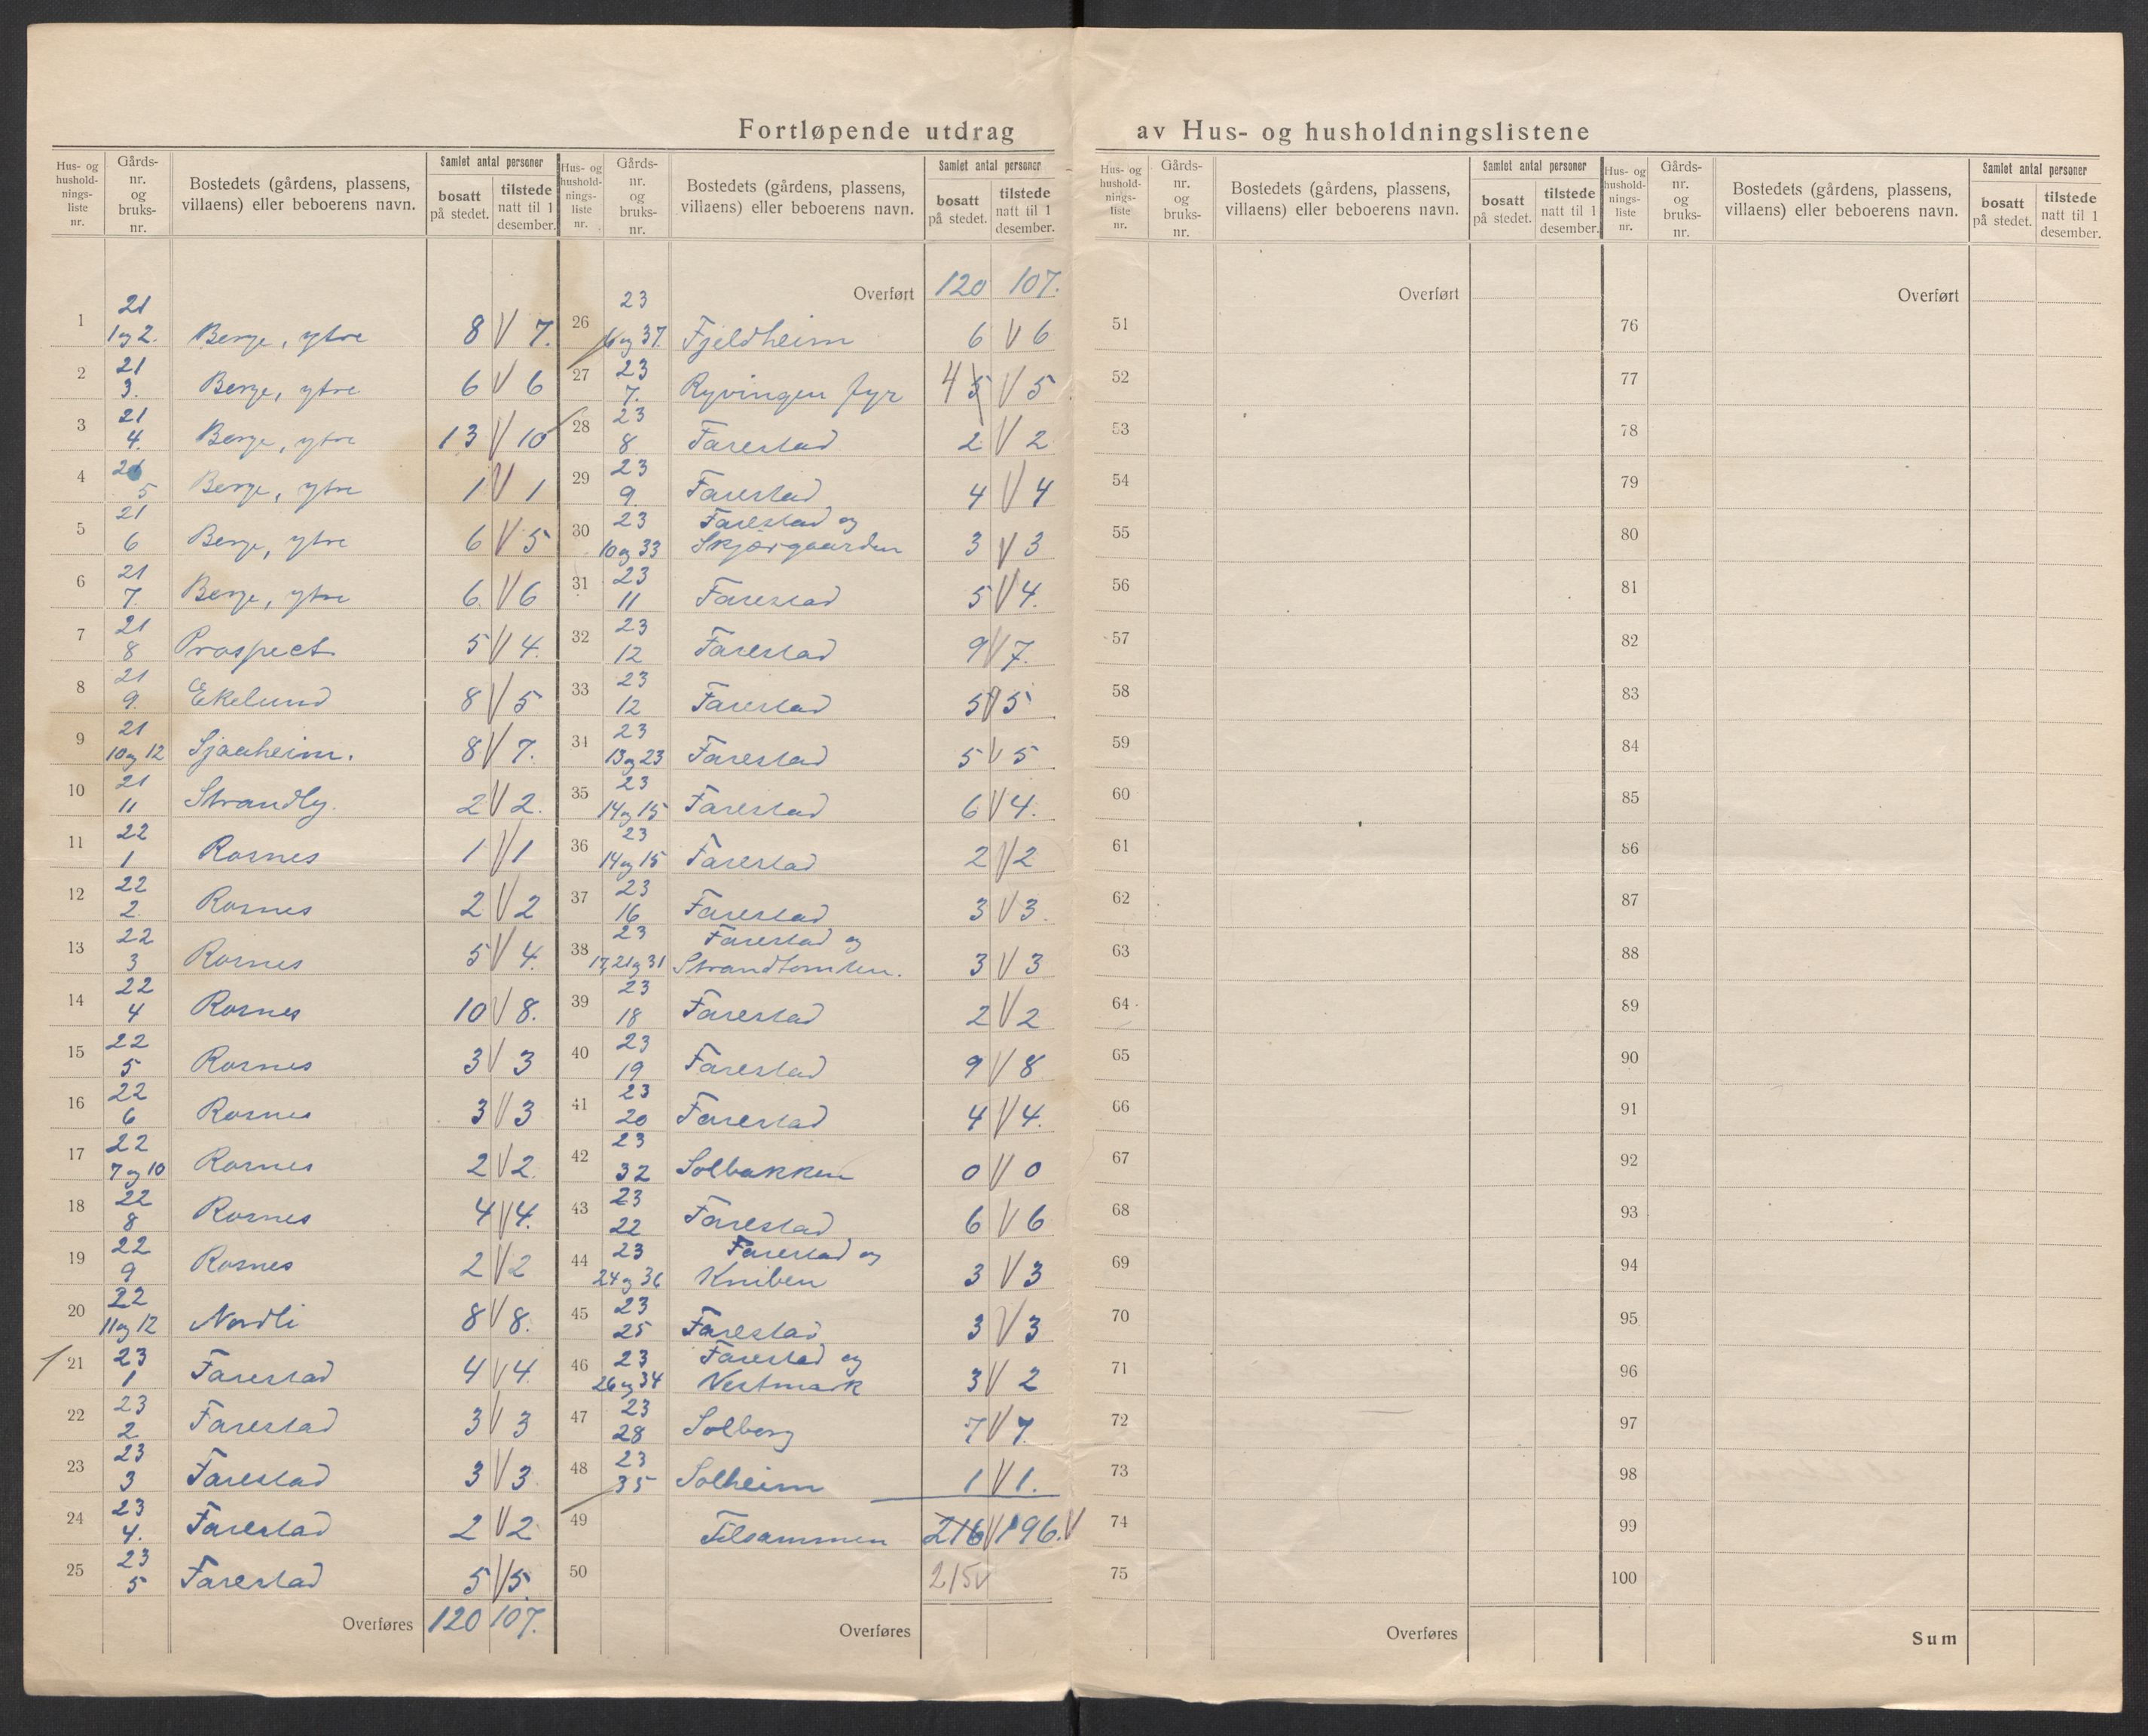 Fortløpende utdrag av Hus- og husholdningslistene
Hus- og hushold-nings-liste nr. Gårds-nr. og bruks-nr. Bostedets (gårdens, plassens, villaens) eller beboerens navn. Samlet antal personer bosatt på stedet. tilstede natt til 1 desember.
1 21 1 og 2. Berge, ytre 8 V 7.
2 21 3. Berge, ytre 6 V 6
3 21 4. Berge, ytre 13 V 10
4 21 5 Berge, ytre 1 V 1
5 21 6 Berge, ytre 6 V 5
6 21 7. Berge, ytre 6. V 6
7 21 8 Prospect 5 V 4.
8 21 9. Ekelund 8 V 5
9 21 10 og 12 Sjaaheim. 8 V 7.
10 21 11 Strandly. 2 V 2.
11 22 1 Rosnes 1 V 1
12 22 2 Rosnes 2 V 2
13 22 3 Rosnes 5 V 4.
14 22 4 Rosnes 10 V 8.
15 22 5 Rosnes 3 V 3
16 22 6 Rosnes 3 V 3
17 22 7 og 10 Rosnes 2 V 2.
18 22 8 Rosnes 4 V 4.
19 22 9 Rosnes 2 V 2
20 22 11 og 12 Nordli 8 V 8.
21 23 1 Farestad 4 V 4.
22 23 2 Farestad 3 V 3
23 23 3 Farestad 3 V 3
24 23 4. Farestad 2 V 2
25 23 5 Farestad 5 V 5.
Overføres 120 107.
Hus- og hushold-nings-liste nr. Gårds-nr. og bruks-nr. Bostedets (gårdens, plassens, villaens) eller beboerens navn. Samlet antal personer bosatt på stedet. tilstede natt til 1 desember.
Overført 120 107.
26 23 6 og 37. Fjeldheim 6 V 6
27 23 7. Ryvingen fyr 4 5 V 5
28 23 8 Farestad 2 V 2
29 23 9. Farestad 4 V 4
30 23 10 og 33 Farestad og Skjærgaarden 3 V 3
31 23 11 Farestad 5 V 4.
32 23 12 Farestad 9 V 7.
33 23 12 Farestad 5 V 5
34 23 13 og 23 Farestad 5 V 5
35 23 14 og 15 Farestad 6 V 4.
36 23 14 og 15 Farestad 2 V 2
37 23 16 Farestad 3 V 3.
38 23 17, 21 og 31 Farestad og Strandtomten. 3 V 3
39 23 18 Farestad 2 V 2
40 23 19 Farestad 9 V 8
41 23 20 Farestad 4 V 4.
42 23 32 Solbakken 0 V 0
43 23 22 Farestad 6 V 6
44 23 24 og 36 Farestad og Kniben 3 V 3
45 23 25 Farestad 3 V 3
46 23 26 og 34 Farestad og Vestmark 3 V 2
47 23 28 Solberg 7 V 7
48 23 35 Solheim 1 V 1.
49 Tilsammen 216 V 196. V
50 215 V
Overføres
Hus- og hushold-nings-liste nr. Gårds-nr. og bruks-nr. Bostedets (gårdens, plassens, villaens) eller beboerens navn. Samlet antal personer bosatt på stedet. tilstede natt til 1 desember.
Overført
51
52
53
54
55
56
57
58
59
60
61
62
63
64
65
66
67
68
69
70
71
72
73
74
75
Overføres
Hus- og hushold-nings-liste nr. Gårds-nr. og bruks-nr. Bostedets (gårdens, plassens, villaens) eller beboerens navn. Samlet antal personer bosatt på stedet. tilstede natt til 1 desember.
Overført
76
77
78
79
80
81
82
83
84
85
86
87
88
89
90
91
92
93
94
95
96
97
98
99
100
Sum